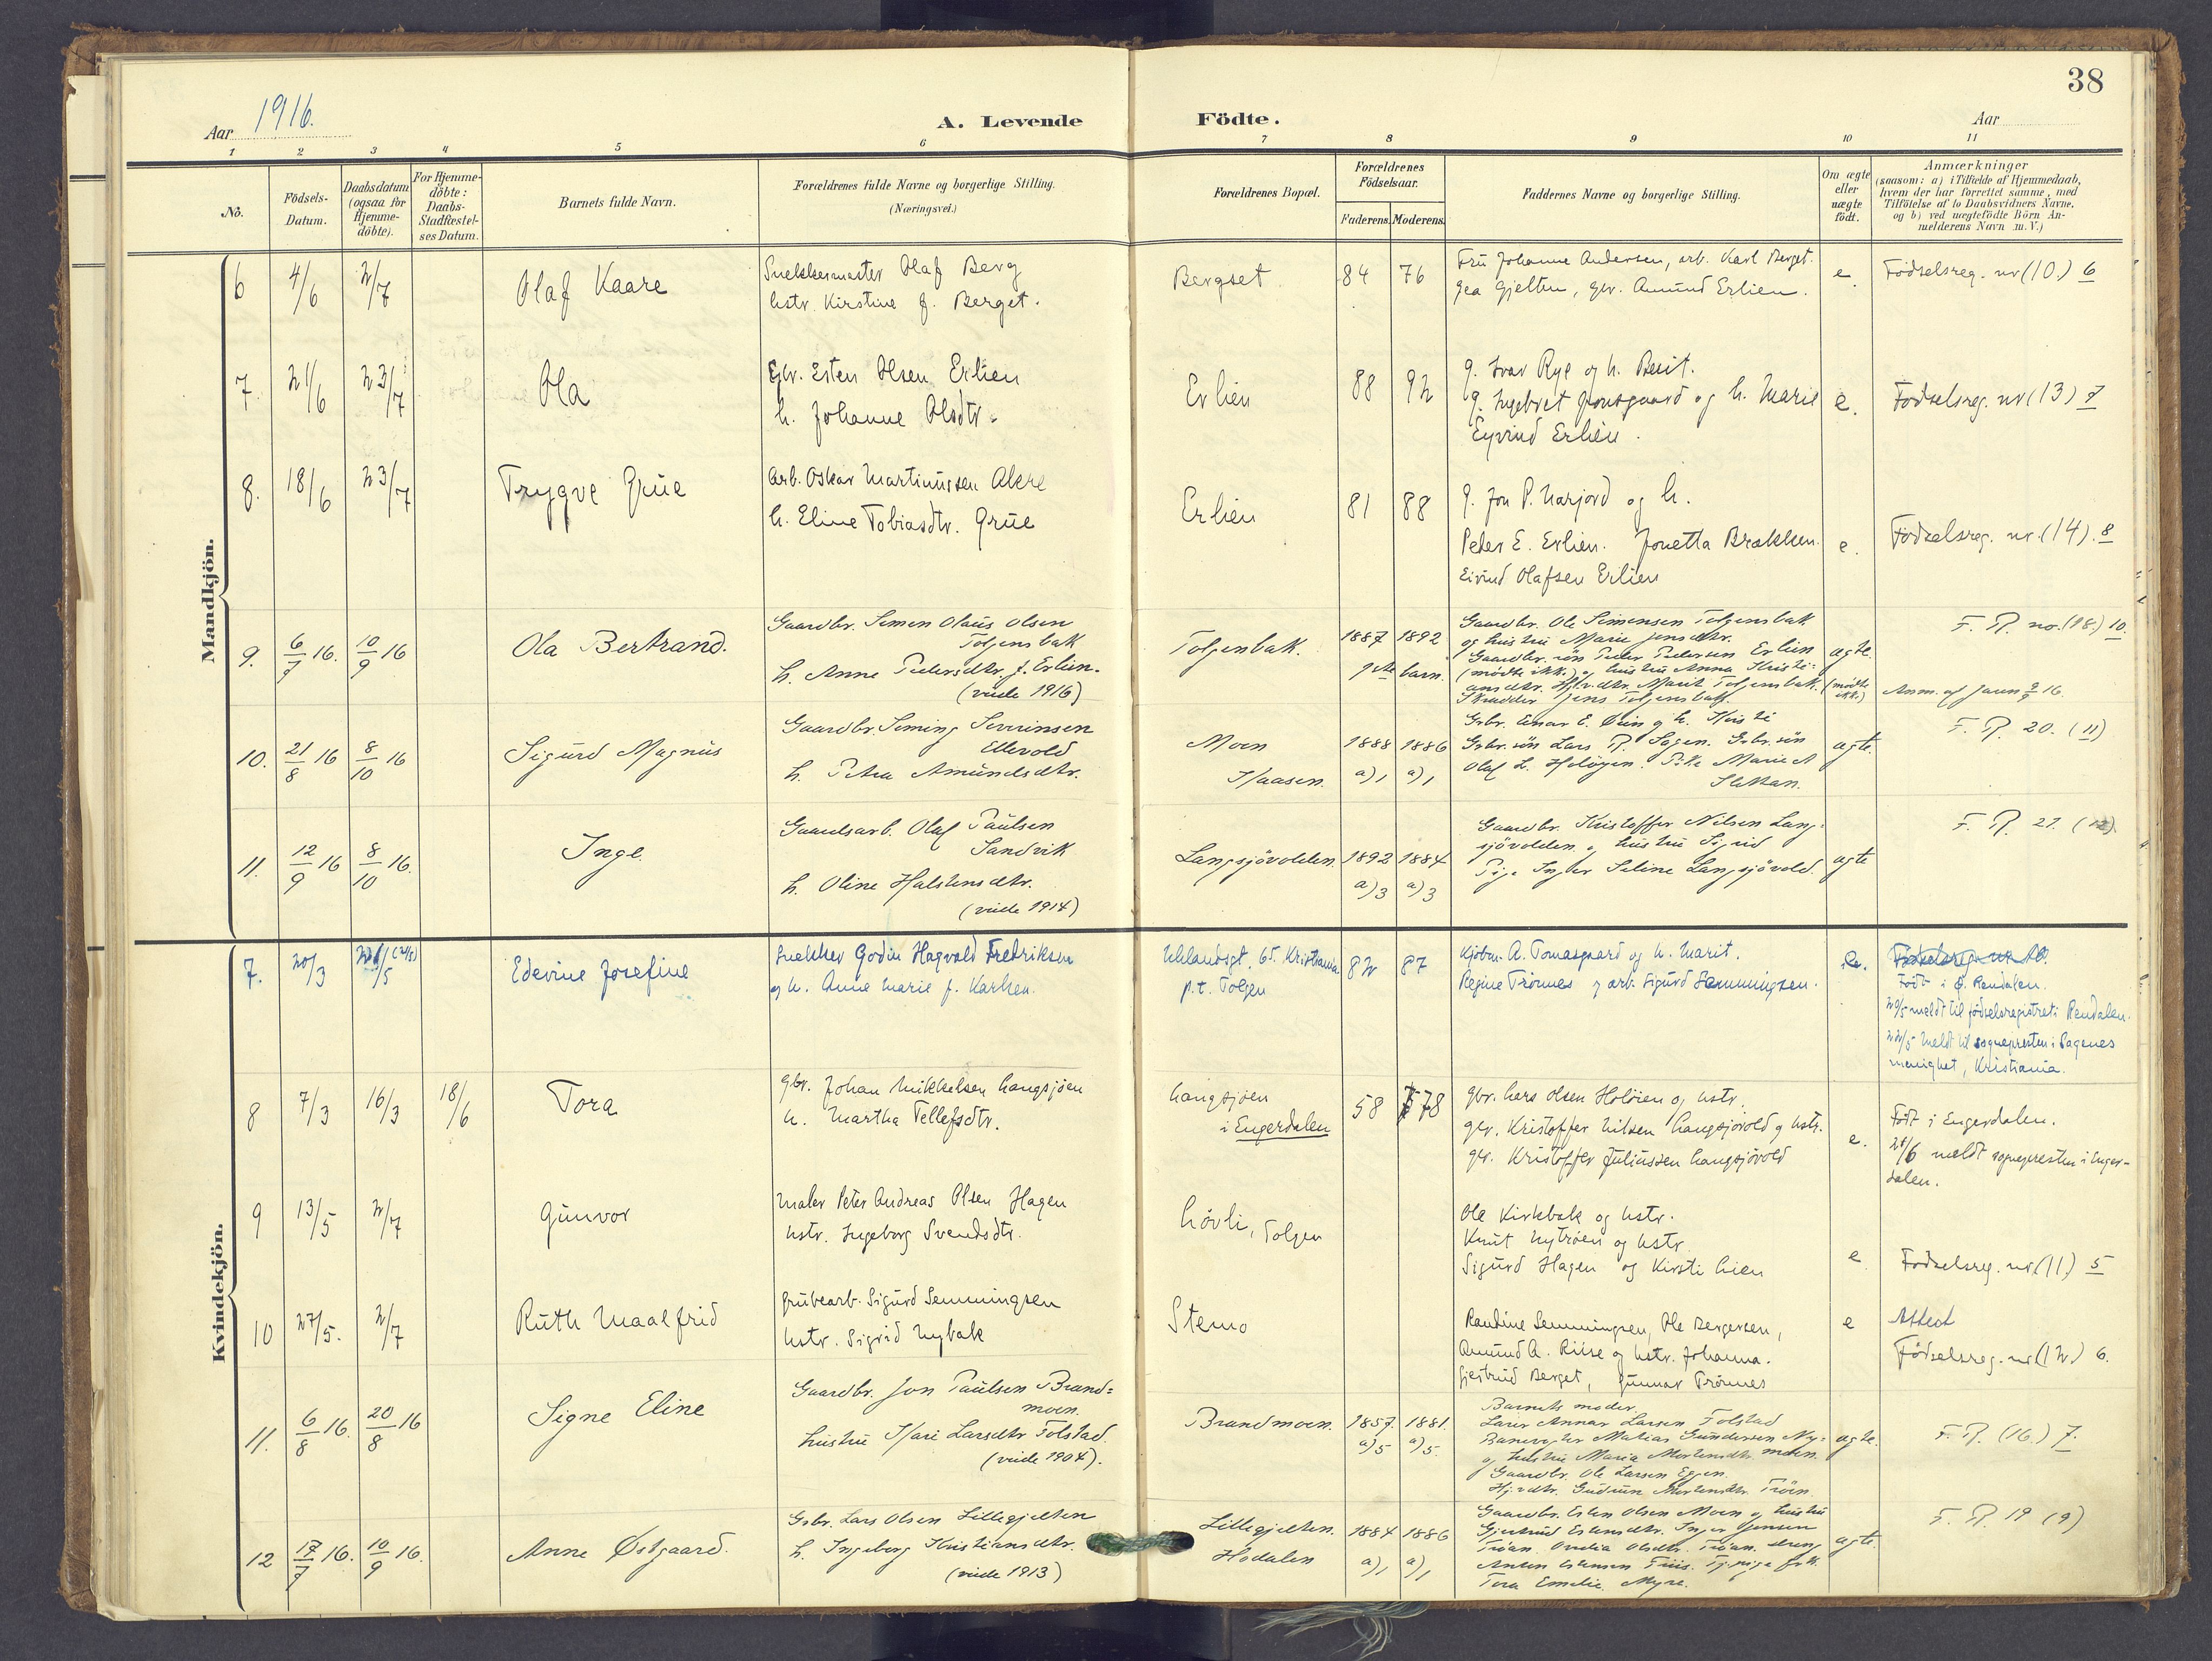 38
Aar 1916.
A. Levende Födte.
Aar
1 2 3 4 5 6 7 8 9 10 11
No.
Födsels-
Datum.
Daabsdatum
(ogsaa for
Hjemme-
döbte).
For Hjemme-
döbte:
Daabs-
Stadfæstel-
ses Datum.
Barnets fulde Navn.
Forældrenes fulde Navne og borgerlige Stilling.
(Næringsvei.)
Forældrenes Bopæl.
Forældrenes
Födselsaar.
Faderens. Moderens.
Faddernes Navne og borgerlige Stilling.
Om ægte
eller
uægte
födt.
Anmærkninger
(saasom: a) i Tilfælde af Hjemmedaab,
hvem der har forrettet samme, med
Tilföielse af to Daabsvidners Navne,
og b) ved uægtefödte Börn An-
melderens Navn m. V.)
Mandkjön.
6 4/6 2/7 Olaf Kaare
Snekkermaster Olaf Berg
hstr. Kirstine f. Berget.
Bergset 84 76
Fru Johanne Andersen, arb. Karl Berget.
Gea Gjelten, gbr. Amund Erlien.
e. Födselsreg. nr (10.) 6
7. 21/6 23/7 Ola
Gbr. Esten Olsen Erlien
h. Johanne Olsdtr.
Erlien 88 92
g. Ivar Rye og h. Berit.
g. Ingebret Jonsgaard og h. Marie
Eyvind Erlien.
e. Födselsreg. nr (13) 7
8. 18/6 23/7 Trygve Grue
Arb. Oskar Martinussen Akre
h. Eline Tobiasdtr. Grue
Erlien 81 88
g. Jon P. Narjord og h.
Peter E. Erlien. Jonetta Brækken.
Eivind Olafsen Erlien
e. Födselsreg. nr. (14). 8
9. 6/7 16. 10/9 16 Ola Bertrand.
Gaardbr. Simen Olaus Olsen
Tolgensbak
h. Anne Pedersdtr. f. Erlien.
(viede 1916)
Tolgenbak. 1887 1892
1ste barn.
Gaardbr. Ole Simensen Tolgensbak
og hustru Marie Jensdtr.
Gaardbr. sön Peder Pedersen Erlien
(mödte ikke) og hustru Anna Kristi-
ansdtr. Marit Tolgensbak. (mödte ikke)
Skrædder Jens Tolgensbak.
ægte.
F. R. no. (18.) 10.
Anm. af Jaun 9/9 16.
10. 21/8 16 8/10 16 Sigurd Magnus
Gaardbr. Seming Severinsen
Ellevold
h. Petra Amundsdtr.
Moen 1888 1886
Haasen. a) 1 a) 1
Gbr. Einar E. Öien og h. Kristi
Grbr. sön Lars R. Sagen. Grbr. sön
Olaf L. Holöyen. Marie
ægte.
F. R. 20. (11)
11. 12/9 16 8/10 16. Inge.
Gaardsarb. Olaf Paulsen
Sandvik
h. Oline Halstensdtr.
(viede 1914)
Langsjövolden. 1892 1884
a) 3 a) 3
Gaardbr. Kristoffer Nilsen Lang-
sjövolden og hustru Sigrid
Pige Inger Seline Langsjövold.
ægte
F. R. 21. (12).
Kvindekjön.
7. 20/3 Edevine Josefine
Snekker Godin Hagvald Fredriksen
og h. Anne Marie f. Karlsen.
Uhlandsgt. 65. Kristiania
p.t. Tolgen
82 87
Kjöbm. A. Tomasgaard og h. Marit.
Regine Trönnes og arb. Sigurd Semmingsen.
e.
Födt i Ö. Rendalen.
20/5 meldt til födselsregistret i Rendalen.
22/5 meldt til sognepresten i Pagenes
menighet, Kristiania.
8 7/3 16/3 18/6 Tora
gbr. Johan Mikkelsen Langsjöen
h. Martha Tellefsdtr.
Langsjöen
i Engerdalen
58 78
gbr. Lars Olsen Holöien og hstr.
gbr. Kristoffer Nilsen Langsjövold og hstr.
gbr. Kristoffer Juliussen Langsjövold
e.
Födt i Engerdalen.
21/6 meldt sognepresten i Enger-
dalen.
9 13/5 2/7 Gunvor
Maler Peter Andreas Olsen Hagen
hstr. Ingeborg Svendsdtr.
Lövli, Tolgen
Ole Kirkbak og hstr.
Knut Nytröen og hstr.
Sigurd Hagen og Kirsti Lien
e Födselsreg. nr. (11.) 5
10 27/5. 2/7 Ruth Maalfrid
grubearb. Sigurd Semmingsen
hstr. Sigrid Nybak
Stemo
Randine Semmingsen, Ole Bergersen,
Amund A. Riise og hstr. Johanna.
Gjertrud Berget, Gunnar Trönnes
e Attest
Födselsreg. nr. (12.) 6.
11. 6/8 16. 20/8 16 Signe Eline
Gaardbr. Jon Paulsen Brand-
moen.
hustru Kari Larsdtr Tolstad
(viede 1904).
Brandmoen. 1857. 1881.
a) 5 a) 5.
Barnets moder.
Lærer Annar Larsen Tolstad
Banevogter Matias Gundersen Ny-
og hustru Maria Mortensdtr. moen.
Gaardbr. Ole Larsen Eggen.
Gudrun Mortensdtr. Tröen.
ægte.
F. R. (16.) 7.
12 17/7 16. 10/9 16. Anne Østgaard.
Grbr. Lars Olsen Lillegjelten
h. Ingeborg Kristiansdtr.
(viede 1913)
Lillegjelten. 1884 1886
Hodalen a) 1 a) 1
Gaardbr. Esten Olsen Moen og hustru
Gjertrud Estensdtr. Inger Jensen
Tröan. Olsdtr. Tröan.
Tora Emelie Myre.
ægte.
F. R. 19 (9)